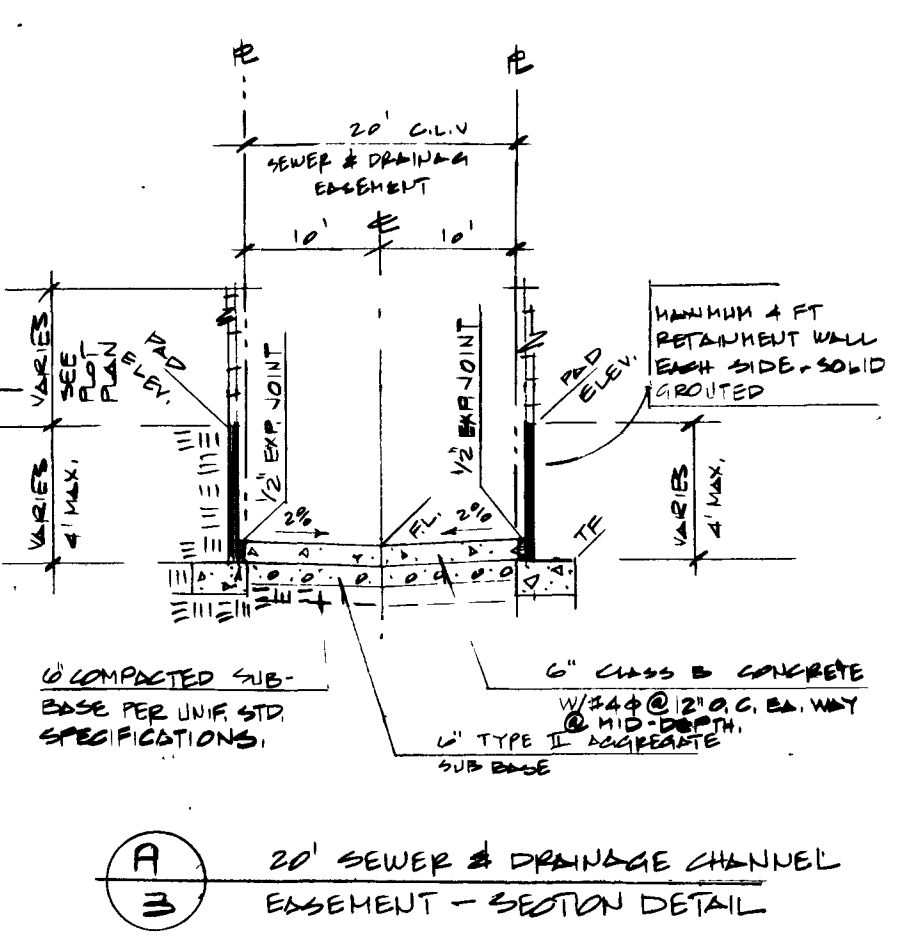 PL
PL
20' C.L.V
SEWER & DRAINAG
EASEMENT
CL
10'
10'
VARIES
SEE
PLOT
PLAN
PAD
ELEV.
1/2" EXP. JOINT
1/2" EXP. JOINT
PAD
ELEV.
MAXIMUM 4 FT
RETAINMENT WALL
EACH SIDE - SOLID
GROUTED
VARIES
4' MAX.
2%
FL.
2%
TF
VARIES
4' MAX.
6" COMPACTED SUB-
BASE PER UNIF. STD.
SPECIFICATIONS.
6" CLASS B CONCRETE
W/#4Φ@12"O.C. EA. WAY
@ MID-DEPTH.
6" TYPE II AGGREGATE
SUB BASE
A
3
20' SEWER & DRAINAGE CHANNEL
EASEMENT - SECTION DETAIL